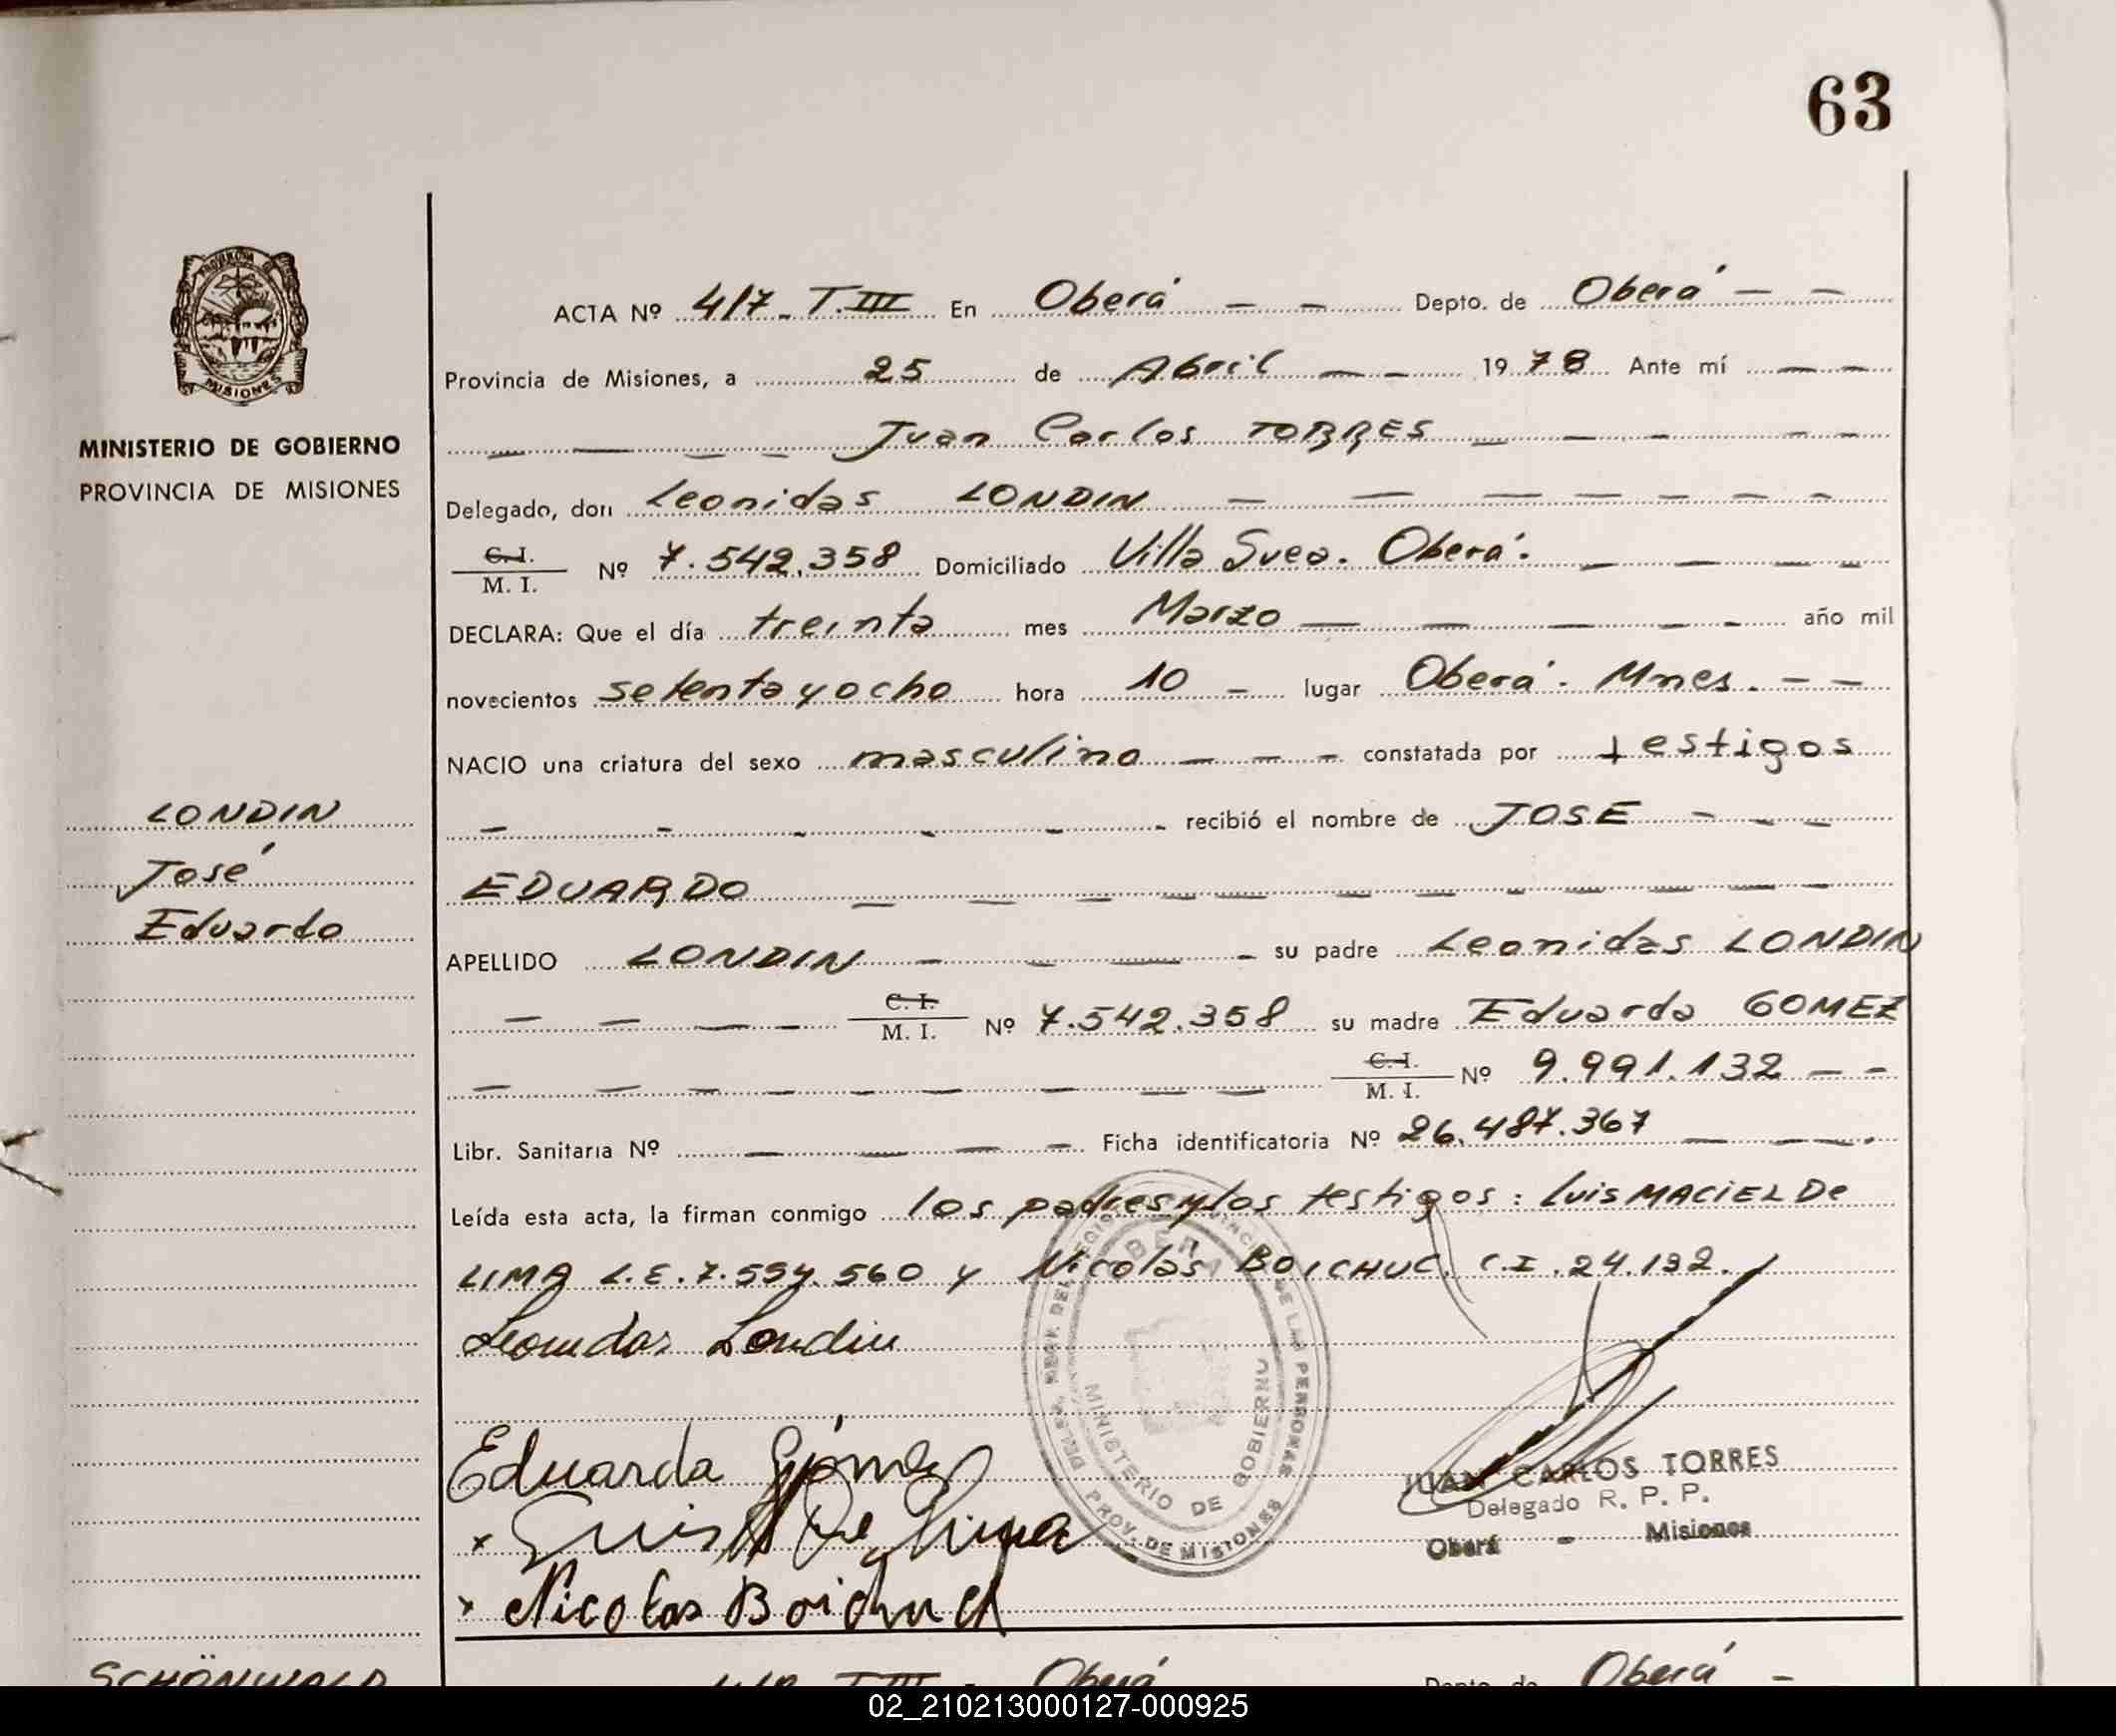 63
ACTA Nº 417 - T.III En Oberá - - Depto. de Oberá - -
Provincia de Misiones, a 25 de Abril - - 1978 Ante mí - -
MINISTERIO DE GOBIERNO
PROVINCIA DE MISIONES
Juan Carlos TORRES
Delegado, don Leonidas LONDIN
C.I.
M. I. Nº 7.542.358 Domiciliado Villa Svea. Oberá.
DECLARA: Que el día treinta mes Marzo año mil
novecientos setenta y ocho hora 10 - lugar Oberá. Mnes. - -
NACIO una criatura del sexo masculino - - - constatada por testigos
LONDIN
José
Eduardo
recibió el nombre de JOSE - - -
EDUARDO
APELLIDO LONDIN su padre Leonidas LONDIN
C. I.
M. I. Nº 7.542.358 su madre Eduarda GOMEZ
C. I.
M. I. Nº 9.991.132 - -
Libr. Sanitaria Nº - - - Ficha identificatoria Nº 26.487.367
Leída esta acta, la firman conmigo los padres y los testigos: Luis MACIEL De
LIMA L.E. 7.554.560 y Nicolás BOICHUC. C.I. 24.132.
Leonidas Londin
Eduarda Gómez
x Luis M De Lima
x Nicolas Boichuck
OBERA
MINISTERIO DE GOBIERNO
PROV. DE MISIONES
JUAN CARLOS TORRES
Delegado R. P. P.
Oberá - Misiones
SCHÖNWALD
418 T III - Oberá Depto. de Oberá -
02_210213000127-000925